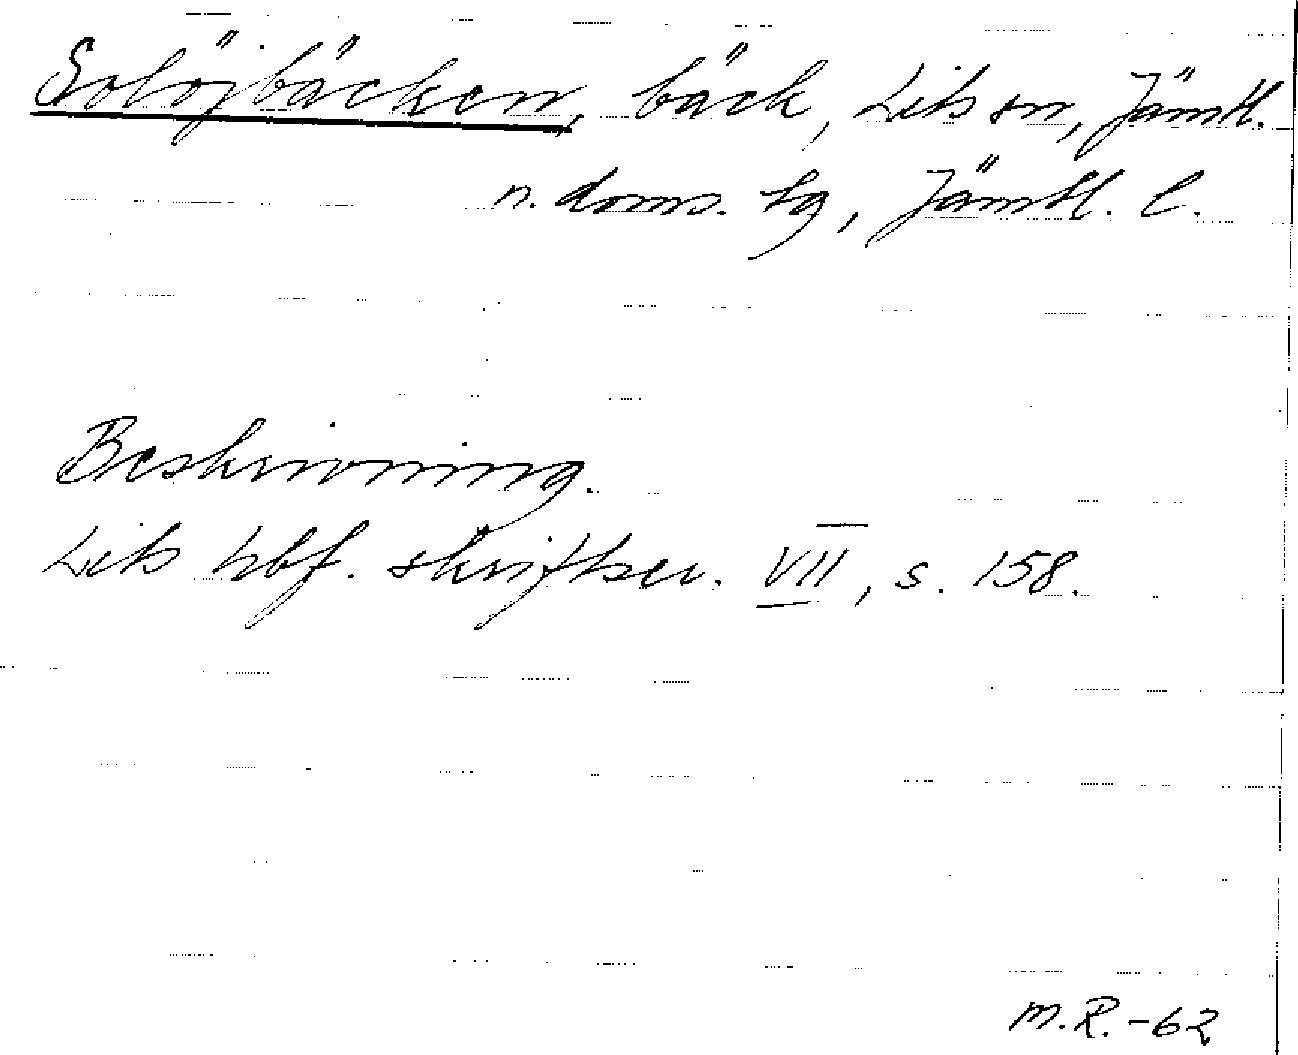 Solöjbäcken, bäck, Lits sn, Jämtl.
n. doms. tg, Jämtl. l.
Beskrivning.
Lits hbf. skriftser. VII, s. 158.
M.R.-62